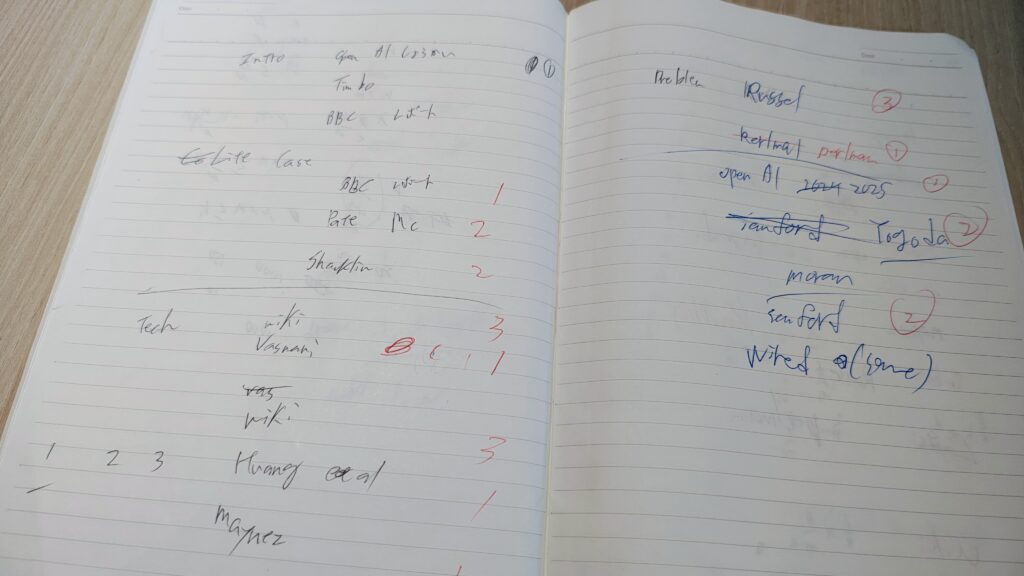 Intro open AI ①
Timbo
BBC レポート
Life Case
BBC レポート 1
Pate Mc 2
2
Tech wiki 3
Vasmani 1
vas
wiki
3
1 2 3 Huang et al
1
Maynez
Problem Russel ③
perlman ①
open AI 2024 2025
Yogoda ②
moran
②
Wired (same)